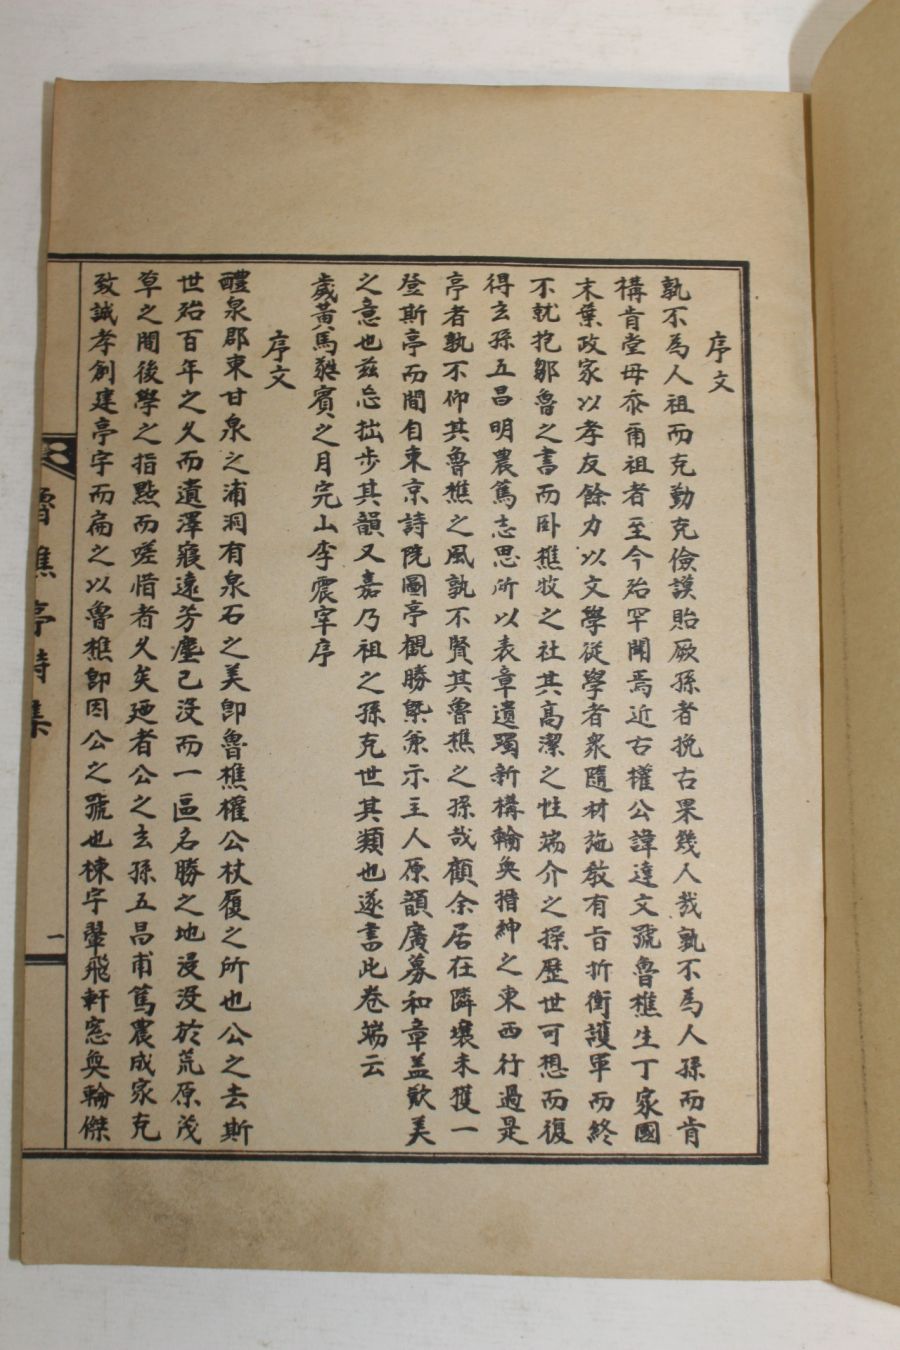 序文
孰不為人祖而克勤克儉謨貽厥孫者挽古果幾人哉孰不為人孫而肯
構肯堂毋忝爾祖者至今殆罕聞焉近古權公諱達文號魯樵生丁家國
末葉政家以孝友餘力以文學從學者衆隨材施教有旨折衝護軍而終
不就抱鄒魯之書而卧樵牧之社其高潔之性端介之操歷世可想而復
得玄孫五昌明農篤志思所以表章遺躅新構輪奐搢紳之東西行過是
亭者孰不仰其魯樵之風孰不賢其魯樵之孫哉顧余居在隣壤未獲一
登斯亭而間自東京詩院圖亭觀勝槩兼示主人原韻廣募和章盖歎美
之意也玆忘拙步其韻又嘉乃祖之孫克世其類也遂書此卷端云
歲黃馬蕤賓之月完山李震宰序
序文
醴泉郡東甘泉之浦洞有泉石之美卽魯樵權公杖履之所也公之去斯
世殆百年之久而遺澤寢遠芳塵已沒而一區名勝之地浸沒於荒原茂
草之間後學之指點而嗟惜者久矣廼者公之玄孫五昌甫篤農成家克
致誠孝創建亭宇而扁之以魯樵卽因公之號也棟宇翬飛軒窓奐輪傑
魯樵亭詩集
一